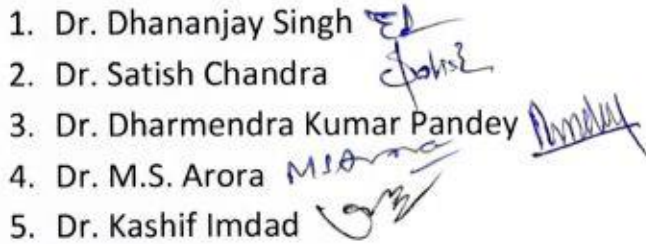 1. Dr. Dhananjay Singh
2. Dr. Satish Chandra
3. Dr. Dharmendra Kumar Pandey Pandey
4. Dr. M.S. Arora MSArora
5. Dr. Kashif Imdad